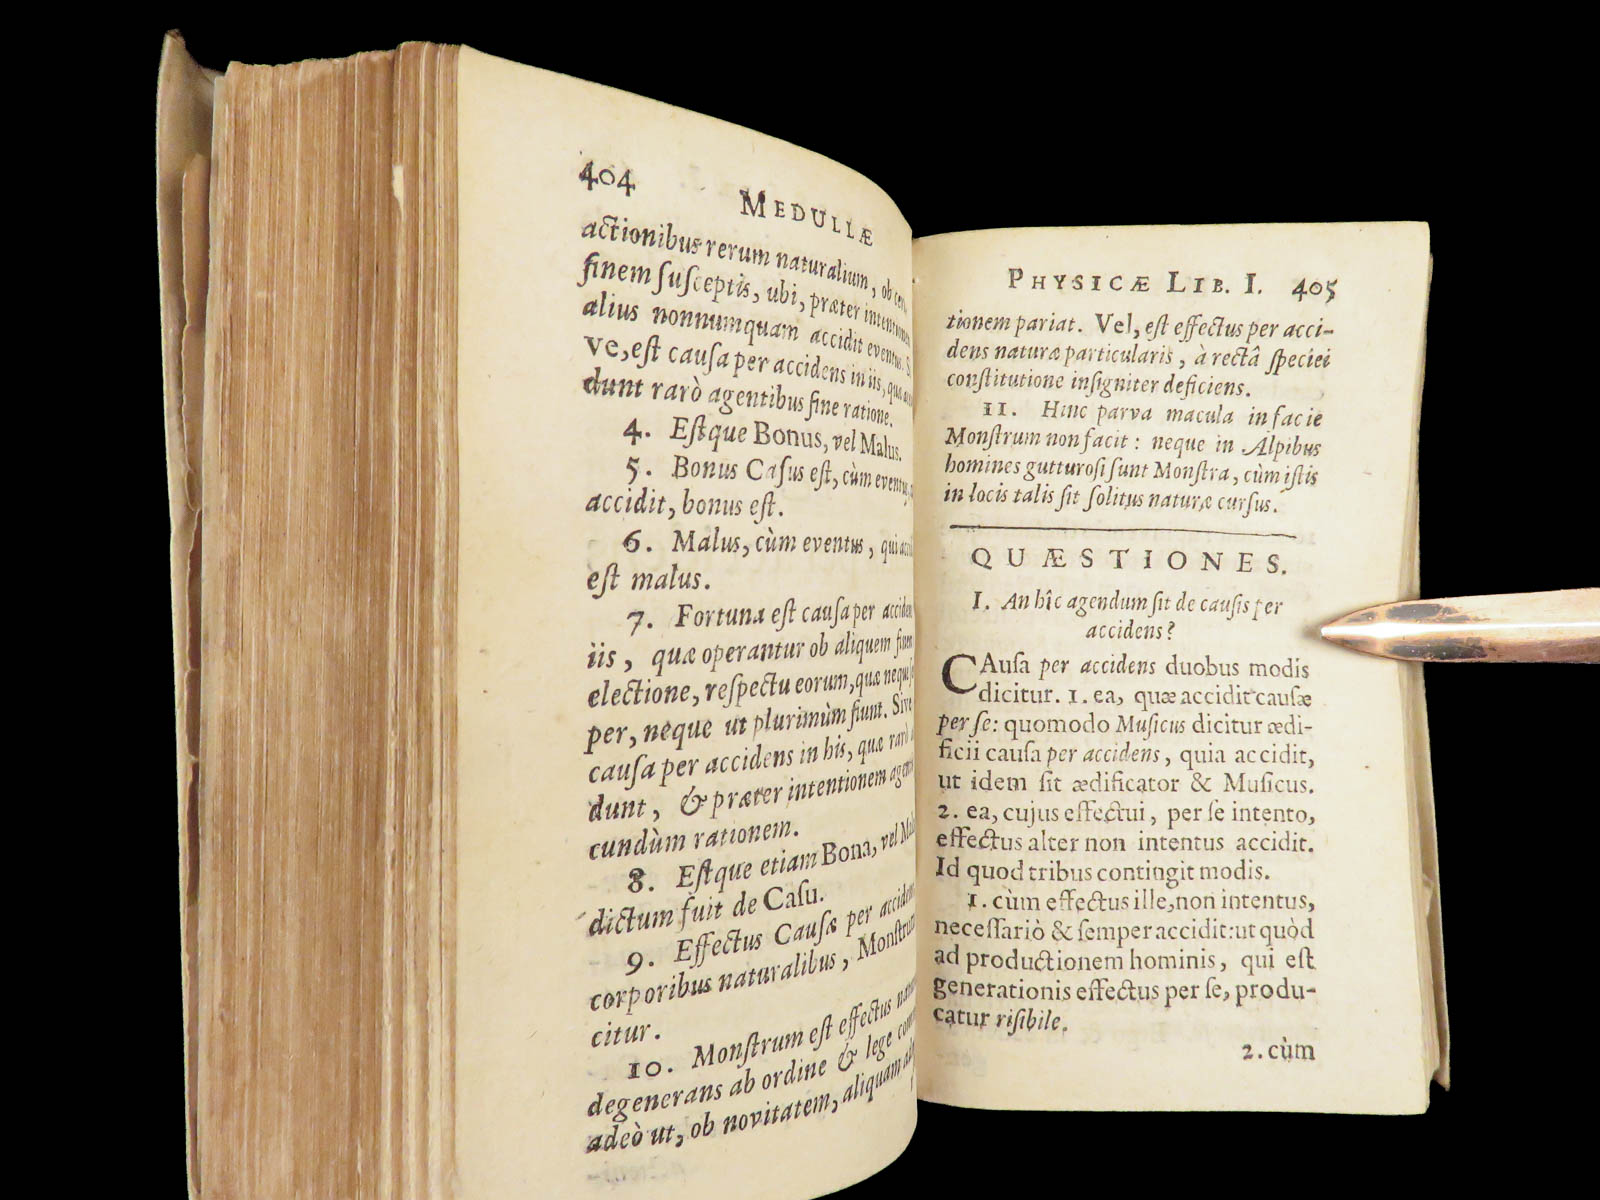 404
MEDULLÆ
actionibus rerum naturalium, ob
finem ſuſceptis, ubi, præter intentionem
alius nonnumquam accidit eventus.
ve, eſt cauſa per accidens in iis,
dunt rarò agentibus ſine ratione.
4. Eſtque Bonus, vel Malus.
5. Bonus Caſus eſt, cùm
accidit, bonus eſt.
6. Malus, cùm eventus, qui
eſt malus.
7. Fortuna eſt cauſa per
iis, quæ operantur ob aliquem
electione, reſpectu eorum, quæ
per, neque ut plurimùm fiunt. Sive
cauſa per accidens in his, quæ rarò
dunt, & præter intentionem
cundùm rationem.
8. Eſtque etiam Bona, vel
dictum fuit de Caſu.
9. Effectus Cauſæ per
corporibus naturalibus,
citur.
10. Monſtrum eſt effectus
degenerans ab ordine & lege
adeò ut, ob novitatem, aliquam
PHYSICÆ LIB. I. 405
tionem pariat. Vel, eſt effectus per acci-
dens naturæ particularis, à rectâ ſpeciei
conſtitutione inſigniter deficiens.
11. Hinc parva macula in facie
Monſtrum non facit: neque in Alpibus
homines gutturoſi ſunt Monſtra, cùm iſtis
in locis talis ſit ſolitus naturæ curſus.
QUÆSTIONES.
I. An hîc agendum ſit de cauſis per
accidens?
CAuſa per accidens duobus modis
dicitur. 1. ea, quæ accidit cauſæ
per ſe: quomodo Muſicus dicitur ædi-
ficii cauſa per accidens, quia accidit,
ut idem ſit ædificator & Muſicus.
2. ea, cujus effectui, per ſe intento,
effectus alter non intentus accidit.
Id quod tribus contingit modis.
1. cùm effectus ille, non intentus,
neceſſariò & ſemper accidit: ut quòd
ad productionem hominis, qui eſt
generationis effectus per ſe, produ-
catur riſibile.
2. cùm